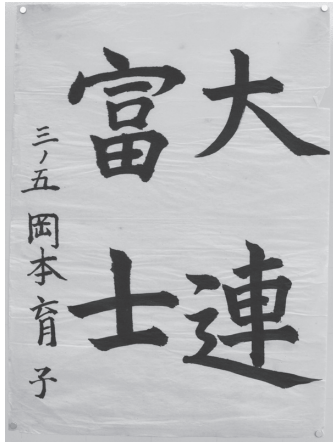 大連
富士
三ノ五 岡本育子